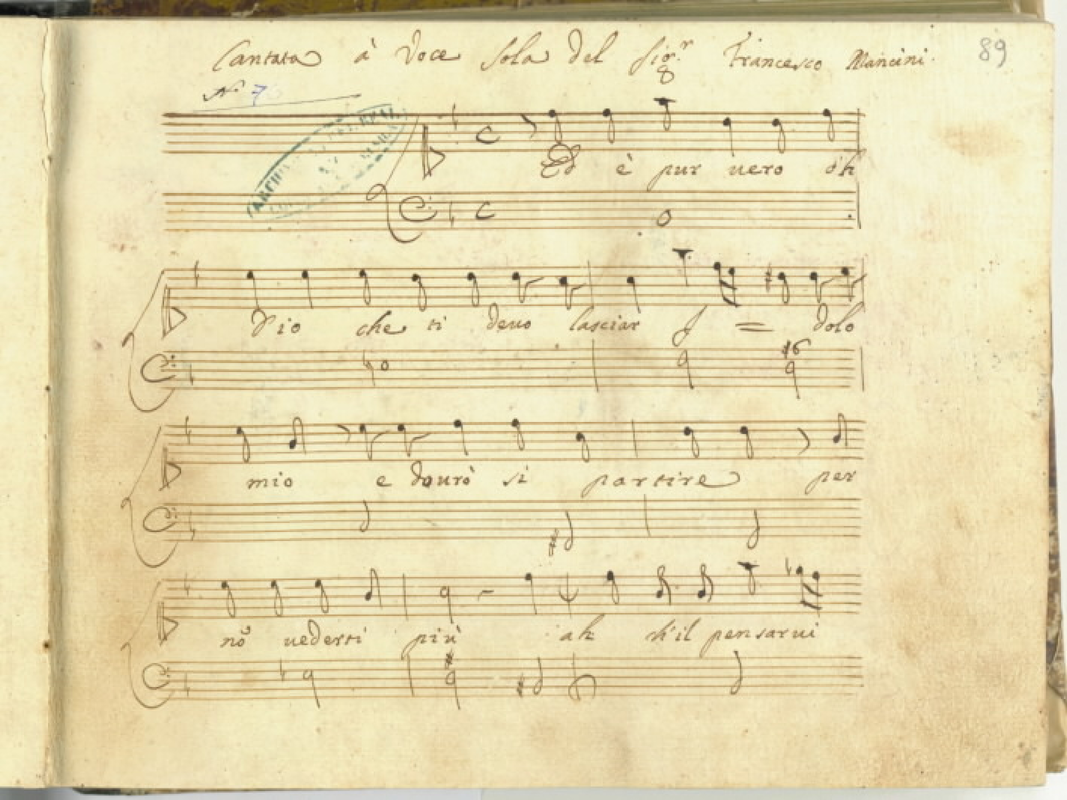 Cantata à Voce Sola del Sig.r Francesco Mancini.
89
N.o 7
Ed è pur uero oh
Dio che ti deuo lasciar I = dolo
mio e dourò si partire per
nō uederti più ah ch'il pensarui